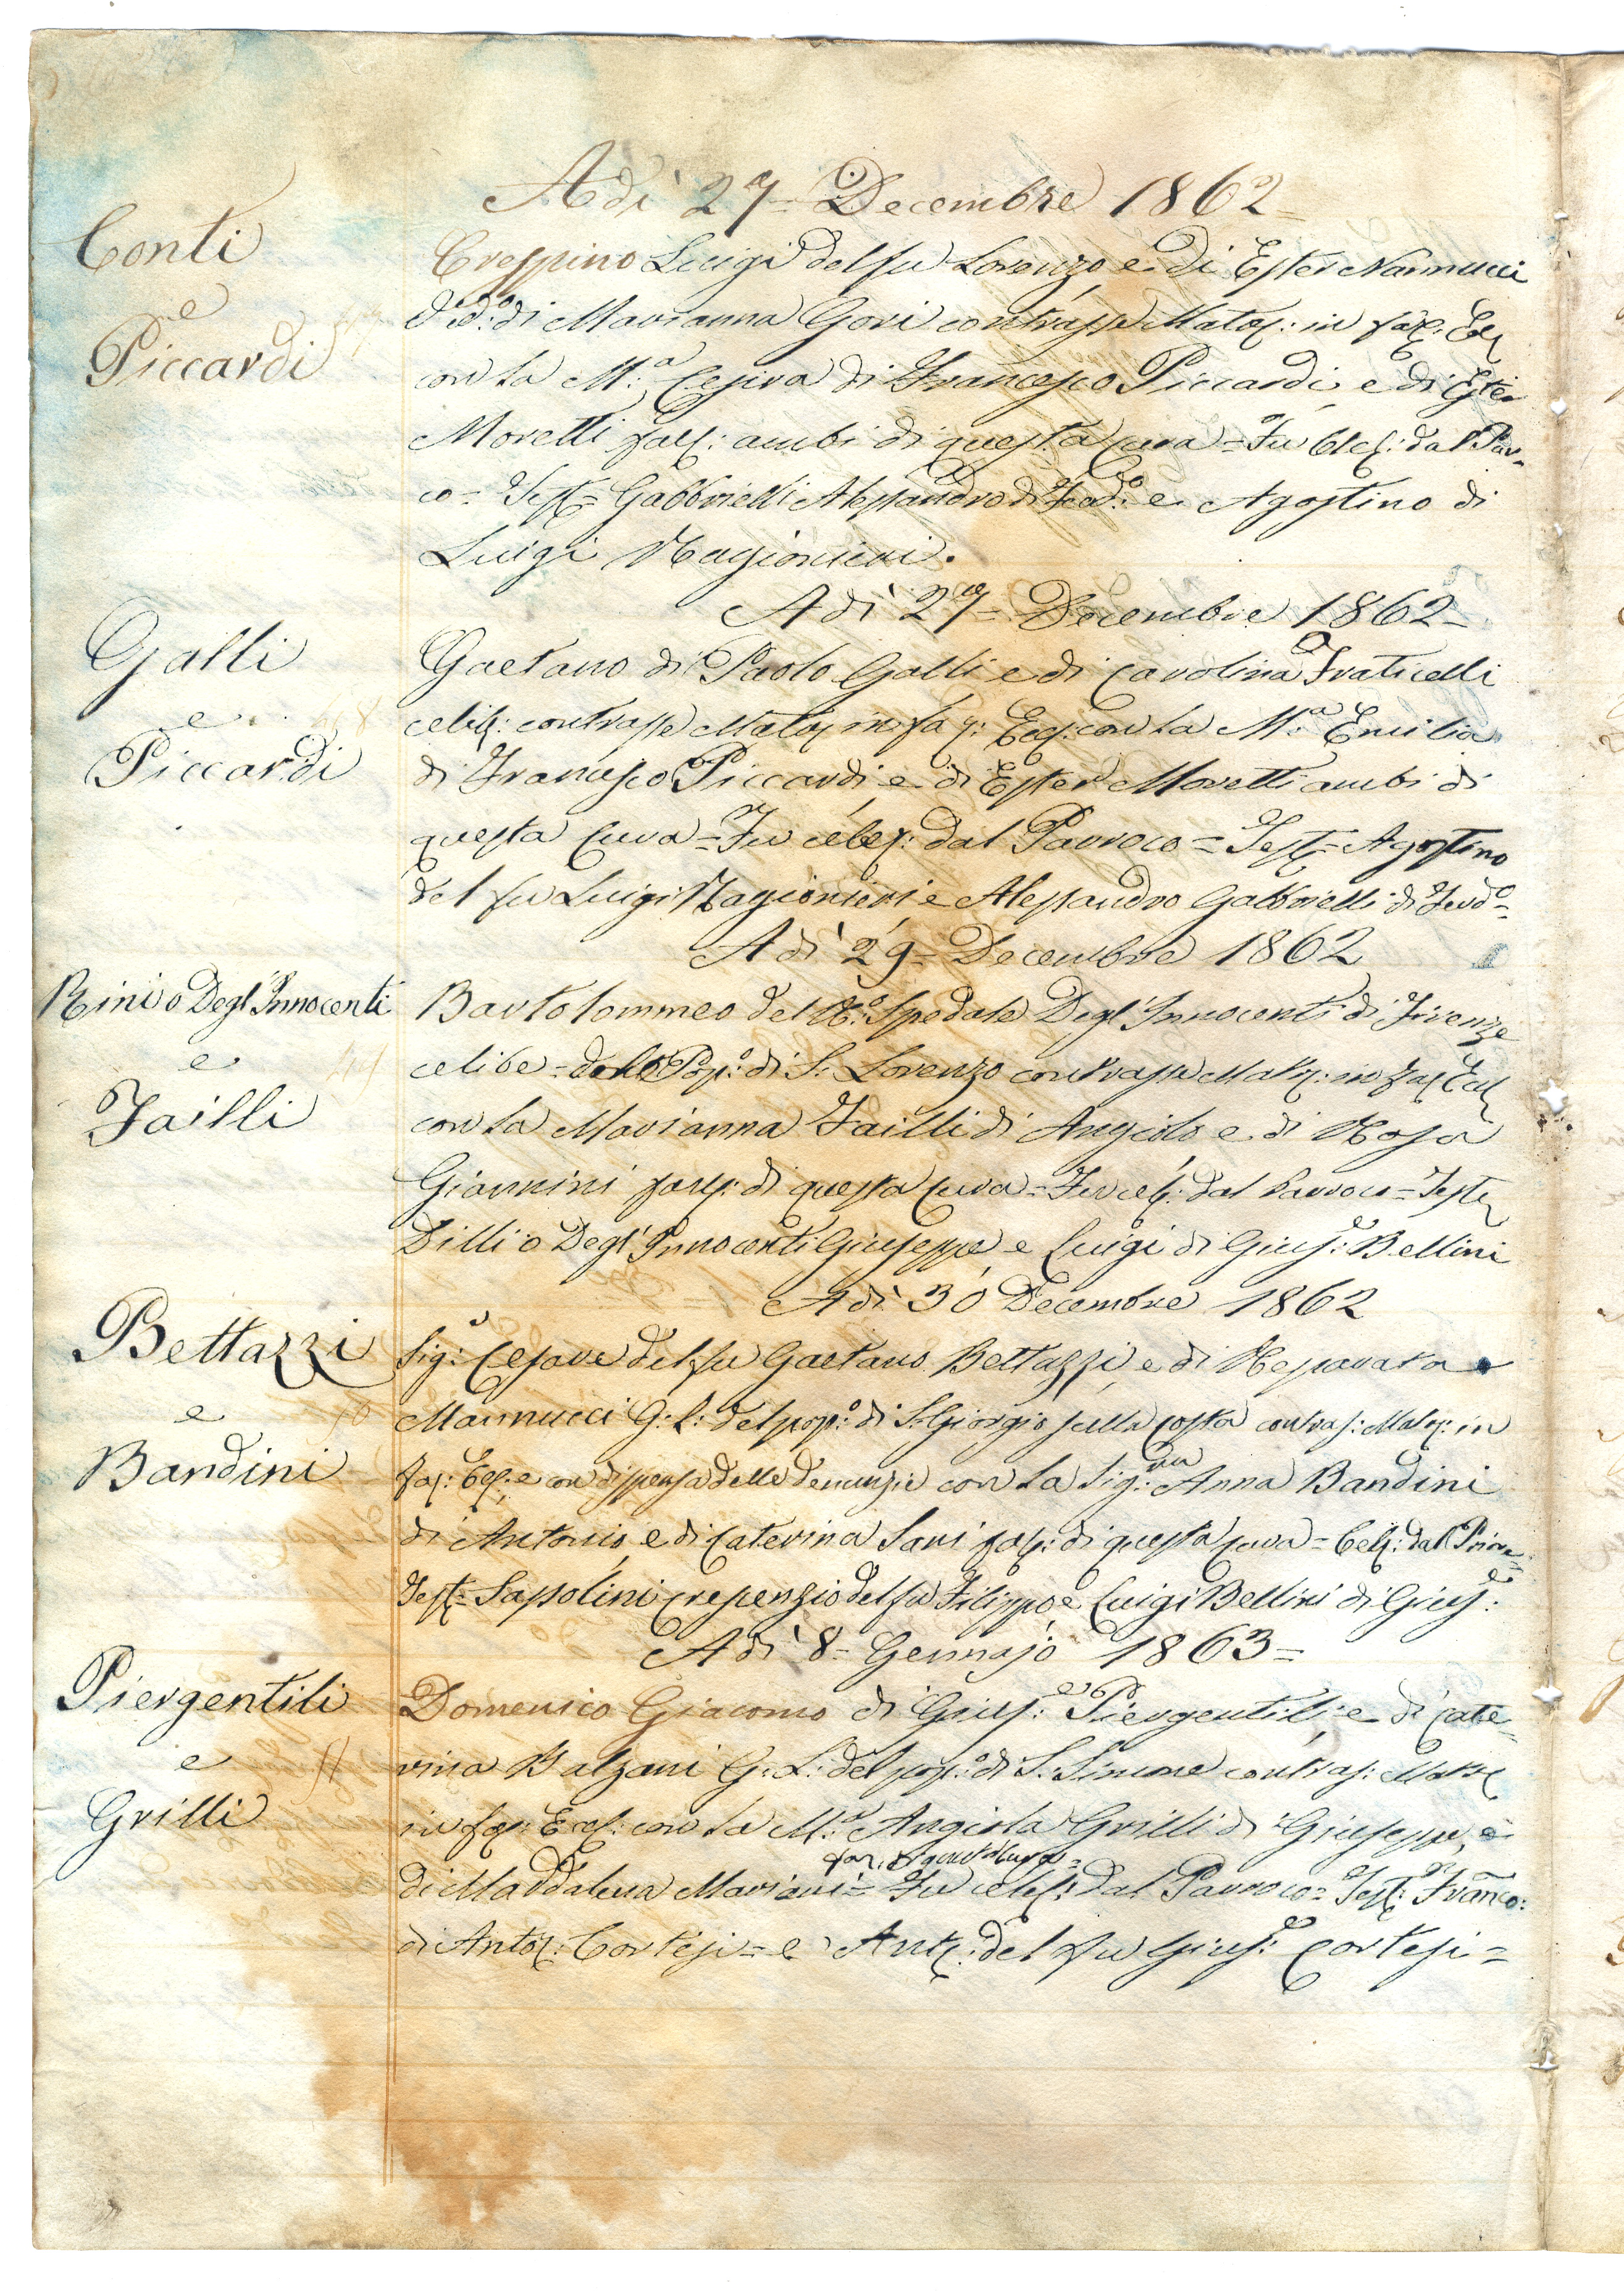 Adì 27= Decembre 1862=
Conti
e
Piccardi
Crespino Luigi del fu Lorenzo e di Ester Nannucci
Ved:º di Marianna Gori contrasse Matr: in fac: Ecc
con la M:ª Cesira di Francesco Piccardi e di Ester
Moretti fac: ambi di questa Cura = Fu Cel: dal Par=
co = Test= Gabbrielli Alessandro di Ferd:º e Agostino di
Luigi Ragionieri.
Adì 27= Decembre 1862=
Galli
e
Piccardi
Gaetano di Paolo Galli e di Carolina Fraticelli
celib: contrasse Matr in fac: Eccl: con la M:ª Emilia
di Francesco Piccardi e di Ester Moretti ambi di
questa Cura = Fu celeb: dal Parroco = Test= Agostino
del fu Luigi Ragionieri e Alessandro Gabbrielli di Ferdº=
Adì 29= Decembre 1862
Rini o Degl'Innocenti
e
Failli
Bartolommeo del R:º Spedale Degl'Innocenti di Firenze
celibe = Pop:º di S: Lorenzo contrasse Matr: in fac Eccl
con la Marianna Failli di Angiolo e di Rosa
Giannini fac: di questa Cura = Fu cel: dal Parroco = Test
Dilli o Degl'Innocenti Giuseppe e Luigi di Gius:e Bellini
Adì 30 Decembre 1862
Bettazzi
e
Bandini
Sig:r Cesare del fu Gaetano Bettazzi e di Reparata
Mannucci G: L: del pop:º di S: Giorgio sulla Costa contras: Matr: in
fac: Ecl: e con dispensa delle denunzie con la Sig:ra Anna Bandini
di Antonio e di Caterina Sari fac: di questa Cura = Cel: dal Priore=
Test= Sassolini Crepenzio del fu Filippo e Luigi Bellini di Gius:e
Adì 8= Gennajo 1863=
Piergentili
e
Grilli
11
Domenico Giacomo di Gius:e Piergentili e di Cate=
rina Balzani G: L: del pop:º di S: Simone contras: Matr
in fac: Eccl: con la M:ª Angiola Grilli di Giuseppe, e
fac: di quest Cura=
di Maddalena Mariani = Fu celeb: dal Parroco = Test: Franco:
di Antº: Cortesi = e Ant: del fu Gius:e Cortesi =